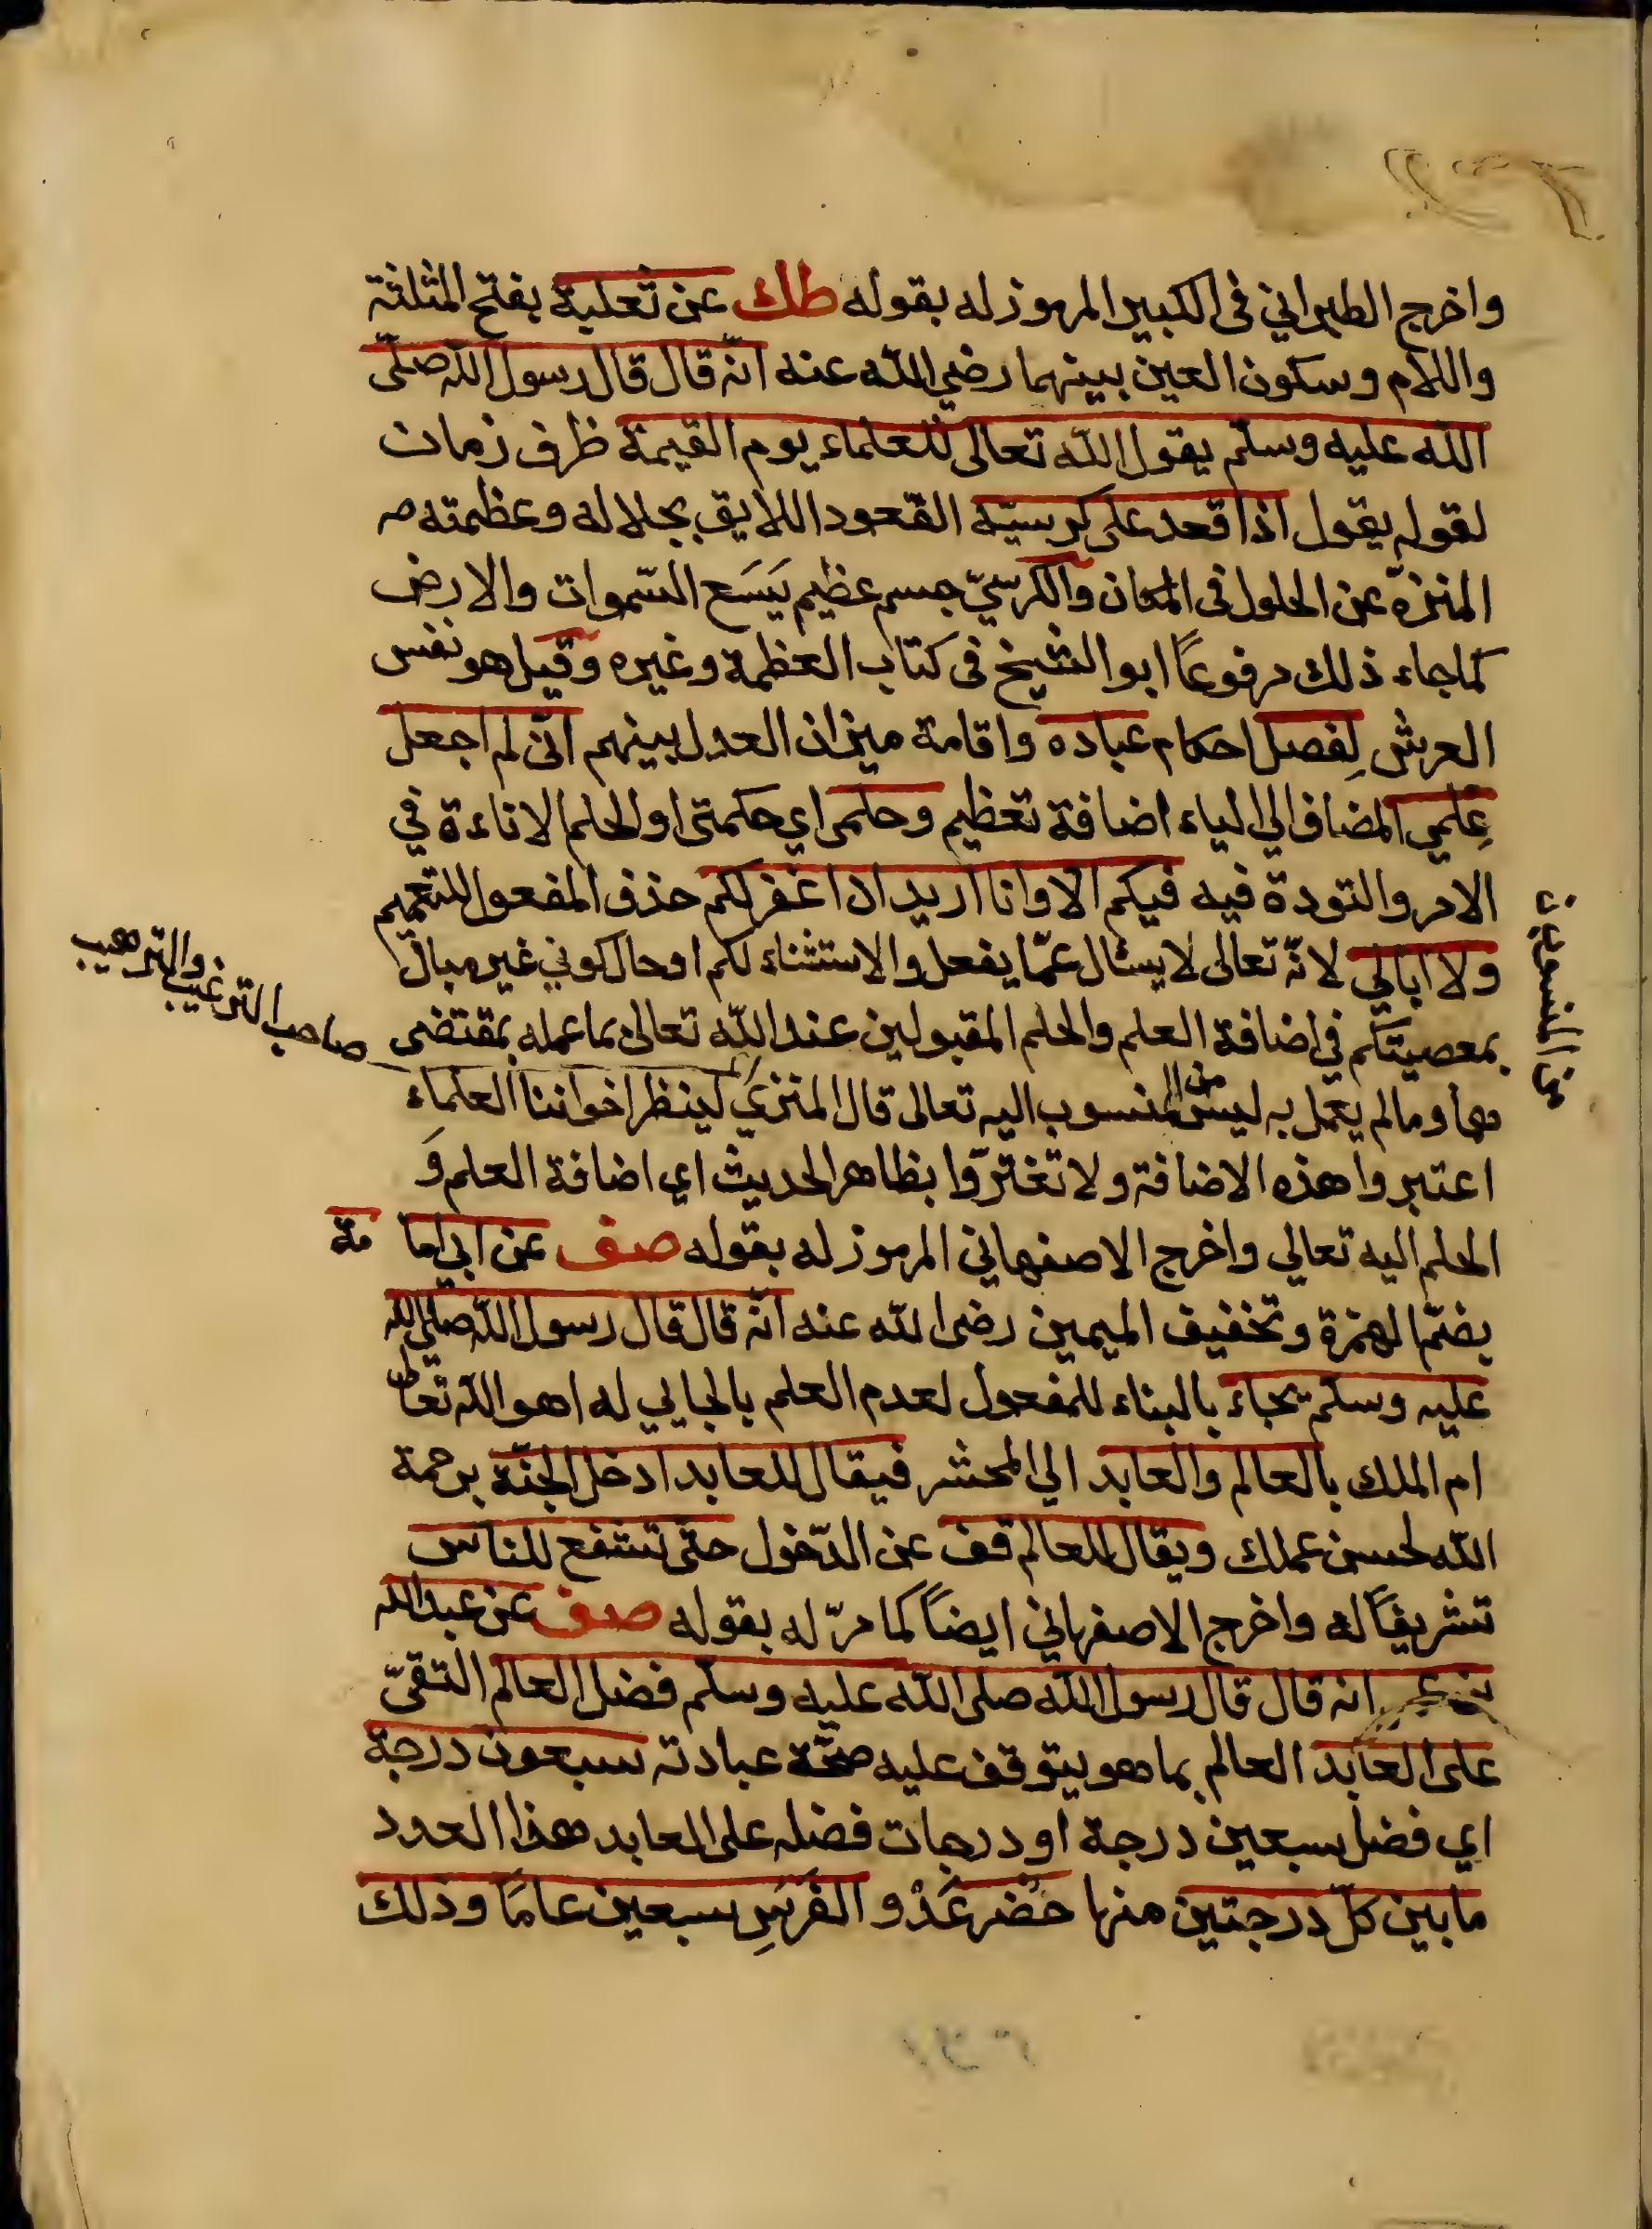 واخرج الطبراني في الكبير المرموز له بقوله طك عن ثعلبة بفتح المثلثة
واللام وسكون العين بينهما رضي الله عنه انه قال قال رسول الله صلى
الله عليه وسلم يقول الله تعالى للعلماء يوم القيمة ظرف زمان
لقوله يقول اذا قعد على كرسيه القعود اللايق بجلاله وعظمته
المنزه عن الحلول في المكان والكرسيّ جسم عظيم يَسَع السموات والارض
كما جاء ذلك مرفوعًا ابو الشيخ في كتاب العظمة وغيره وقيل هو نفس
العرش لِفصل احكام عباده واقامة ميزان العدل بينهم انّى لم اجعل
عِلمي المضاف الى الياء اضافة تعظيم وحلمى اي حكمتى او الحلم الاناءة في
الامر والتودة فيه فيكم الا وانا اريد ان اغفر لكم حذف المفعول للتعميم
ولا ابالي لانّه تعالى لا يسئال عمّا يفعل والاستثناء لكم او حال كوني غير مبال
بمعصيتكم في اضافة العلم والحلم المقبولين عند الله تعالى بما عمله بمقتضى
هما وما لم يعمل به ليس من المنسوب اليه تعالى قال المنزري لينظر اخواننا العلماء
صاحب الترغيب والترهيب
من المنسوبين
اعتبروا هذه الاضافة ولا تغترّوا بظاهر الحديث اي اضافة العلم وَ
الحلم اليه تعالي واخرج الاصفهاني المرموز له بقوله صف عن ابي اما مة
بضمّ الهمزة وتخفيف الميمين رضى الله عنه انّه قال قال رسول الله صلى الله
عليه وسلم يجاء بالبناء للمفعول لعدم العلم بالجايي له اهو الله تعالى
ام الملك بالعالم والعابد الي المحشر فيقال للعابد ادخل الجنّة برحمة
الله لحسن عملك ويقال للعالم قف عن الدّخول حتى تشفع للناس
تشريفًا له واخرج الاصفهاني ايضًا كما مرّ له بقوله صف عن عبد الله
انه قال قال رسول الله صلى الله عليه وسلم فضل العالم التقىّ
على العابد العالم بما هو يتوقف عليه صحّة عبادته سبعون درجة
اي فضل سبعين درجة او درجات فضله على العابد هذا العدد
ما بين كلّ درجتين منها حُضر عَدْو الفَرَسِ سبعين عامًا وذلك